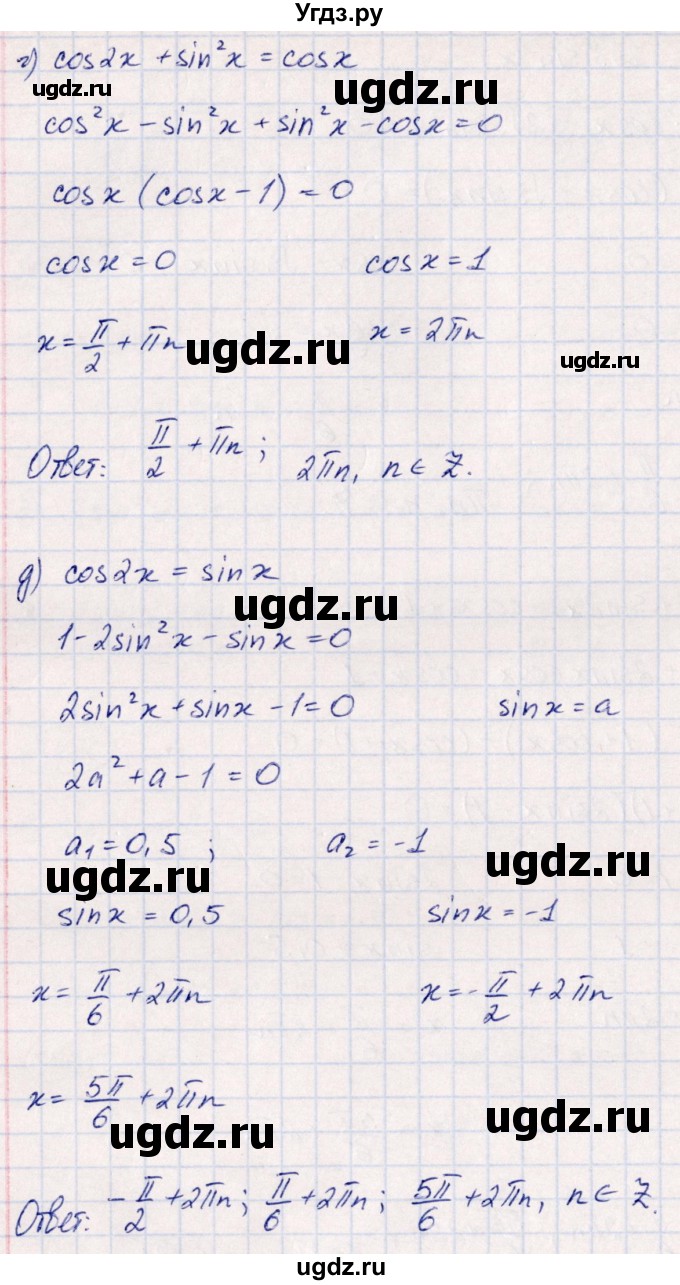 Угдз.ру
г) cos2x + sin²x = cosx
ugdz.ru
ugdz.ru
cos²x − sin²x + sin²x − cosx = 0
cosx (cosx − 1) = 0
cosx = 0    cosx = 1
x = π/2 + πn    x = 2πn
ugdz.ru
ugdz.ru
Ответ: π/2 + πn; 2πn, n ∈ Z.
д) cos2x = sinx
ugdz.ru
1 − 2sin²x − sinx = 0
2sin²x + sinx − 1 = 0    sinx = a
2a² + a − 1 = 0
a₁ = 0,5 ;    a₂ = −1
ugdz.ru
ugdz.ru
sinx = 0,5    sinx = −1
x = π/6 + 2πn    x = −π/2 + 2πn
x = 5π/6 + 2πn
ugdz.ru
ugdz.ru
Ответ: −π/2 + 2πn; π/6 + 2πn; 5π/6 + 2πn, n ∈ Z.
ugdz.ru